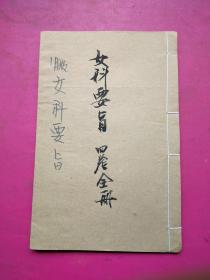 女科要旨 四卷全册
女科要旨